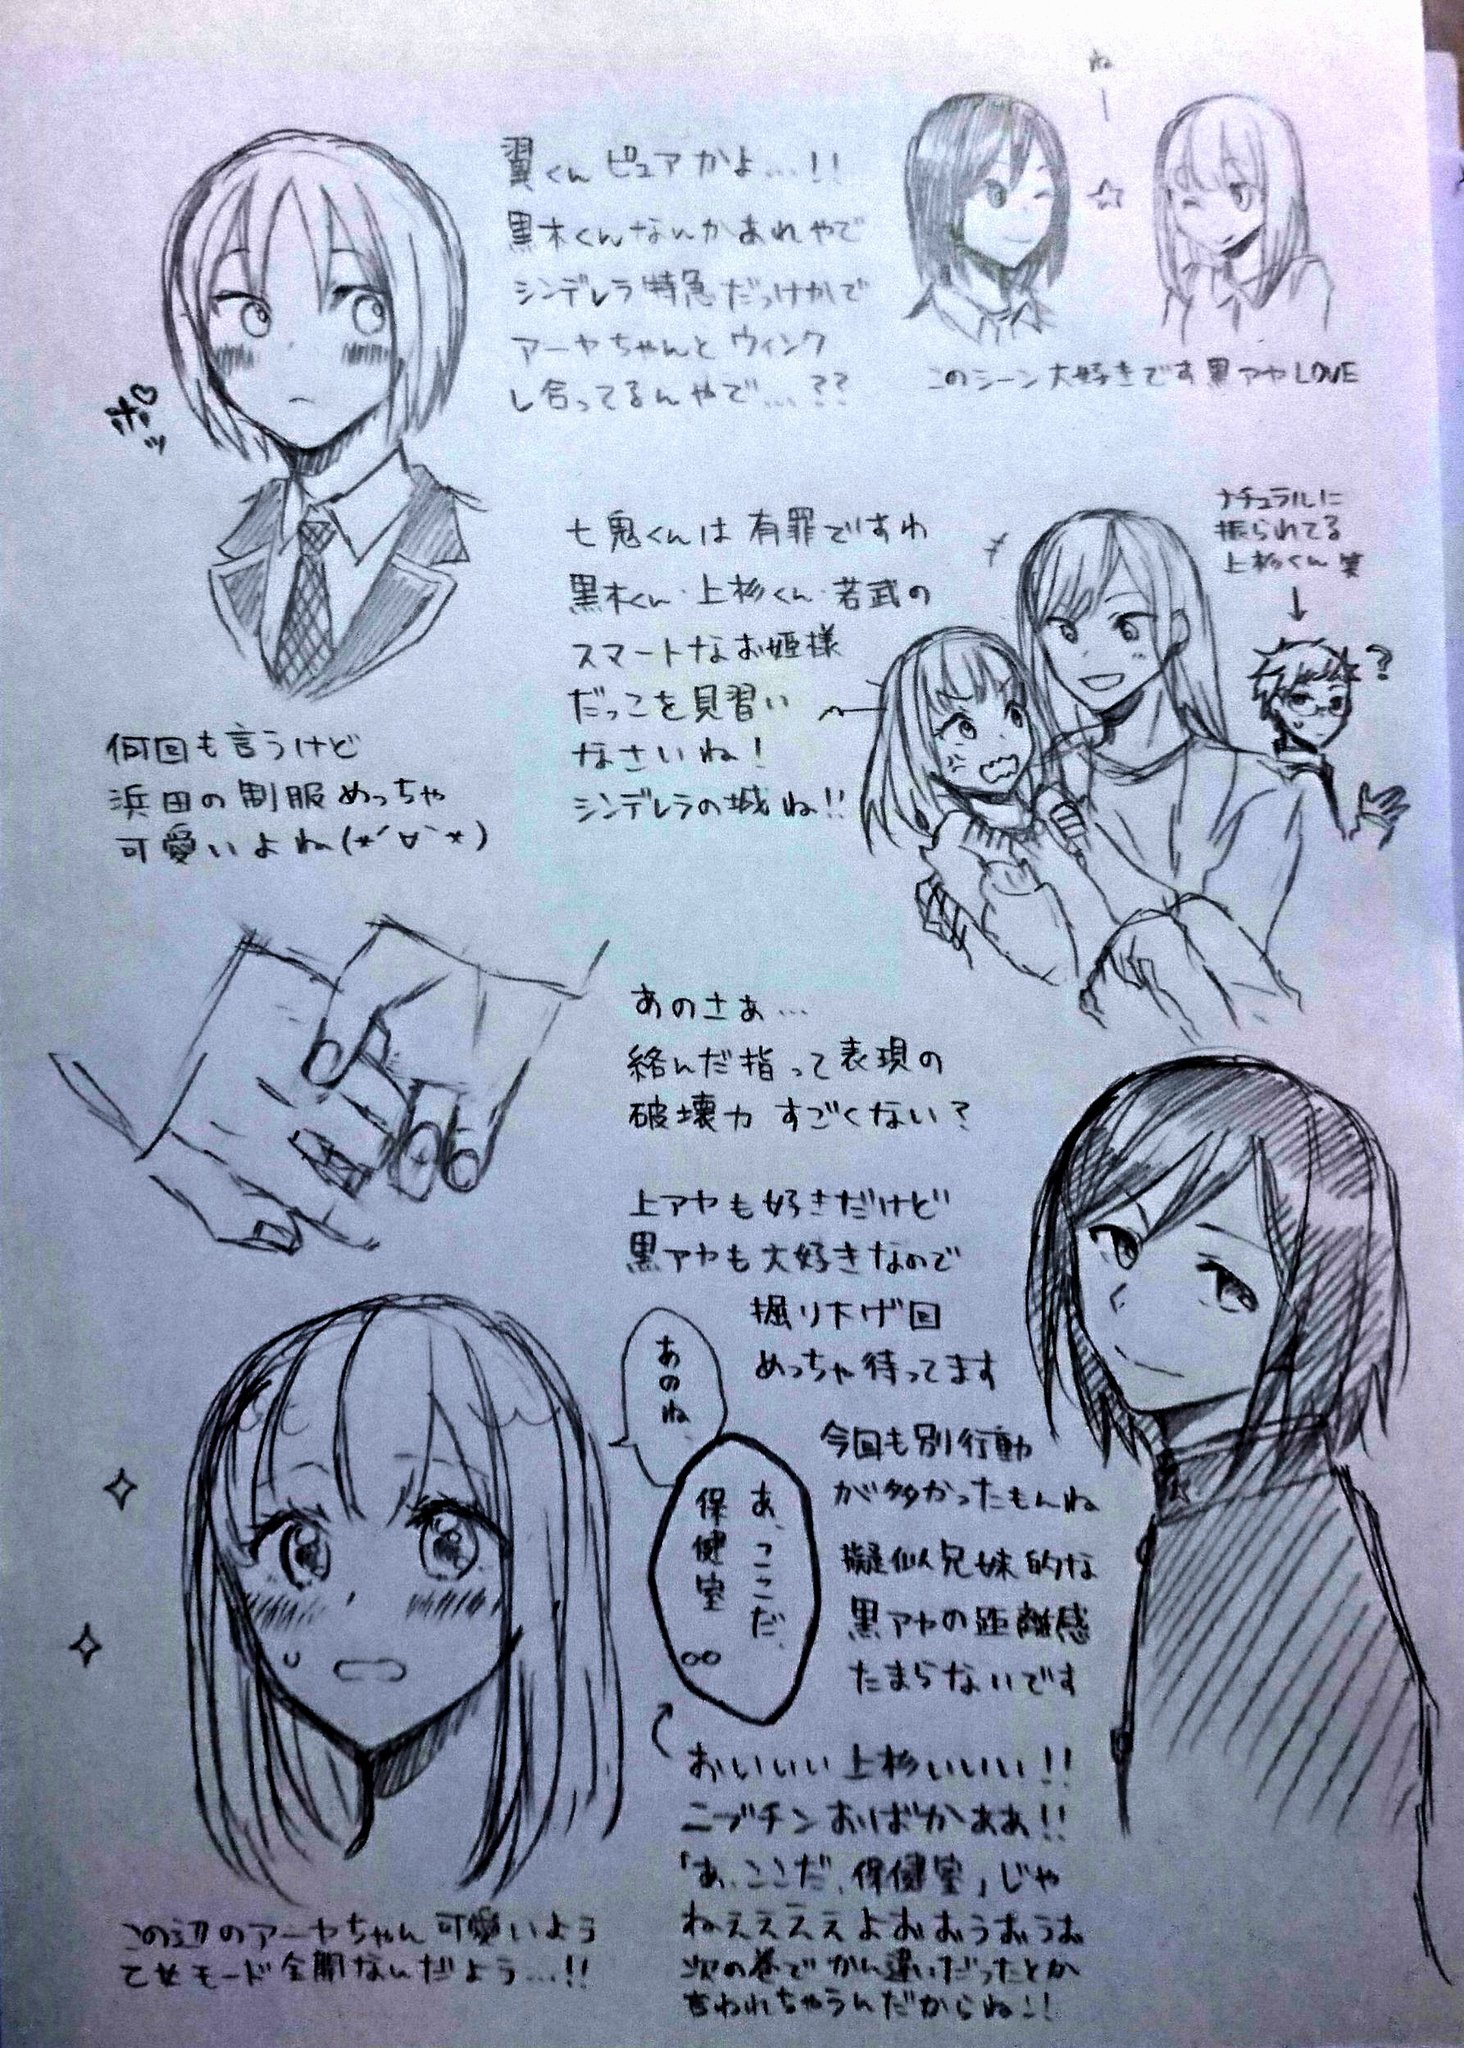 翼くんピュアかよ…!!
黒木くんなんかあれやで
シンデレラ特急だっけかで
アーヤちゃんとウィンク
し合ってるんやで…??
ねー☆
このシーン大好きです黒アヤLOVE
ポッ
何回も言うけど
浜田の制服めっちゃ
可愛いよね(*´∀`*)
七鬼くんは有罪ですわ
黒木くん・上杉くん・若武の
スマートなお姫様
だっこを見習い
なさいね!
シンデレラの城ね!!
ナチュラルに
振られてる
上杉くん 笑
?
あのさぁ…
絡んだ指って表現の
破壊力すごくない?
上アヤも好きだけど
黒アヤも大好きなので
掘り下げ回
めっちゃ待ってます
今回も別行動
が多かったもんね
擬似兄妹的な
黒アヤの距離感
たまらないです
あのね、
あ、ここだ、
保健室。。
おいいい上杉いいい!!
ニブチンおばかああ!!
「あ、ここだ、保健室」じゃ
ねぇえええよおおうおうお
次の巻でかん違いだったとか
言われちゃうんだからね!!
この辺のアーヤちゃん可愛いよう
乙女モード全開なんだよう…!!